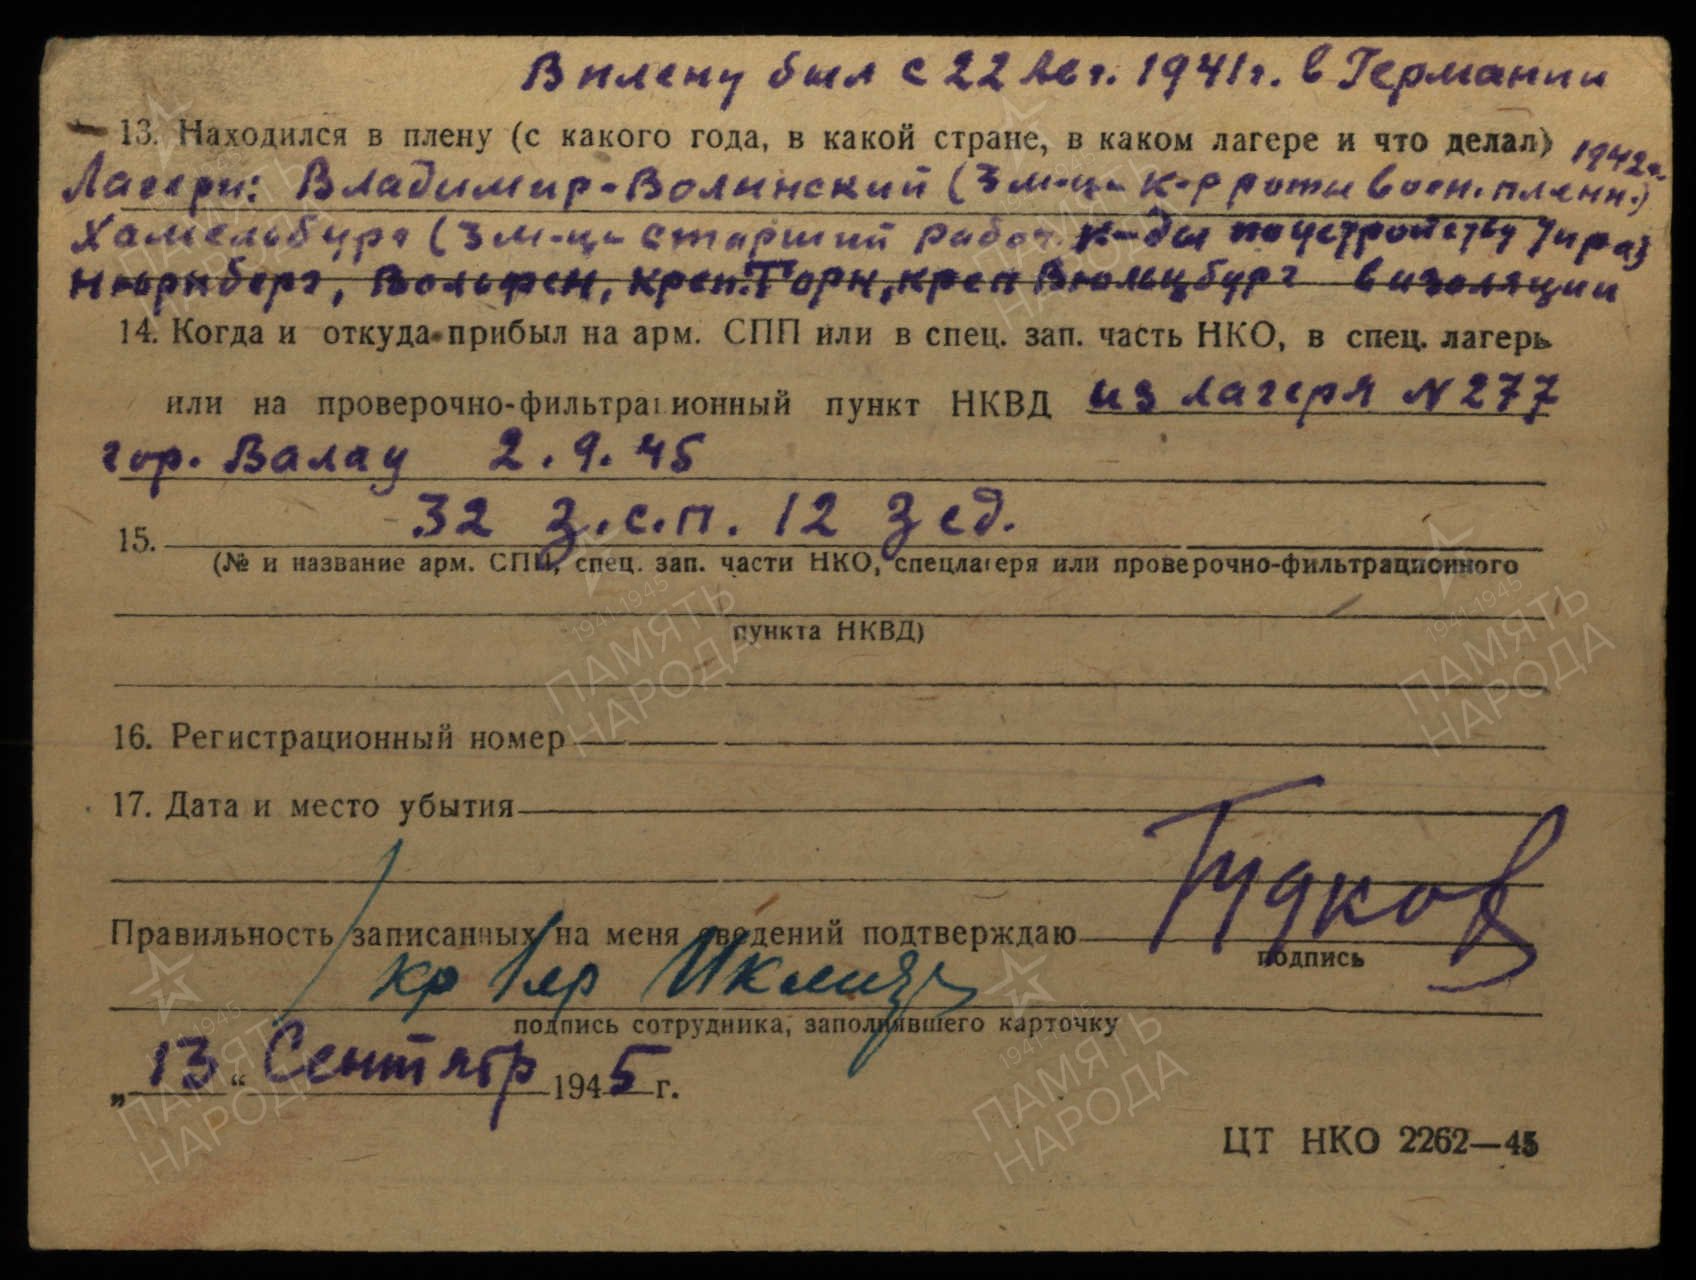 В плену был с 22 Авг. 1941г. в Германии
13. Находился в плену (с какого года, в какой стране, в каком лагере и что делал)
1942г.
Лагери: Владимир-Волинский (3 м-ца к-р роты воен.пленн.)
Хамельбург (3 м-ца старший рабоч. к-ды по устройству тира)
Нюрнберг, Вольфен, креп.Торн, креп Вюльцбург в изоляции
14. Когда и откуда прибыл на арм. СПП или в спец. зап. часть НКО, в спец. лагерь
или на проверочно-фильтрационный пункт НКВД из лагеря N 277
гор. Валау 2.9.45
32 з.с.п. 12 зсд.
15.
(№ и название арм. СПП, спец. зап. части НКО, спецлагеря или проверочно-фильтрационного
пункта НКВД)
16. Регистрационный номер
17. Дата и место убытия
Правильность записанных на меня сведений подтверждаю Гудков
подпись
подпись сотрудника, заполнявшего карточку
„13“ Сентябр 1945 г.
ЦТ НКО 2262—45
1941-1945
ПАМЯТЬ
НАРОДА